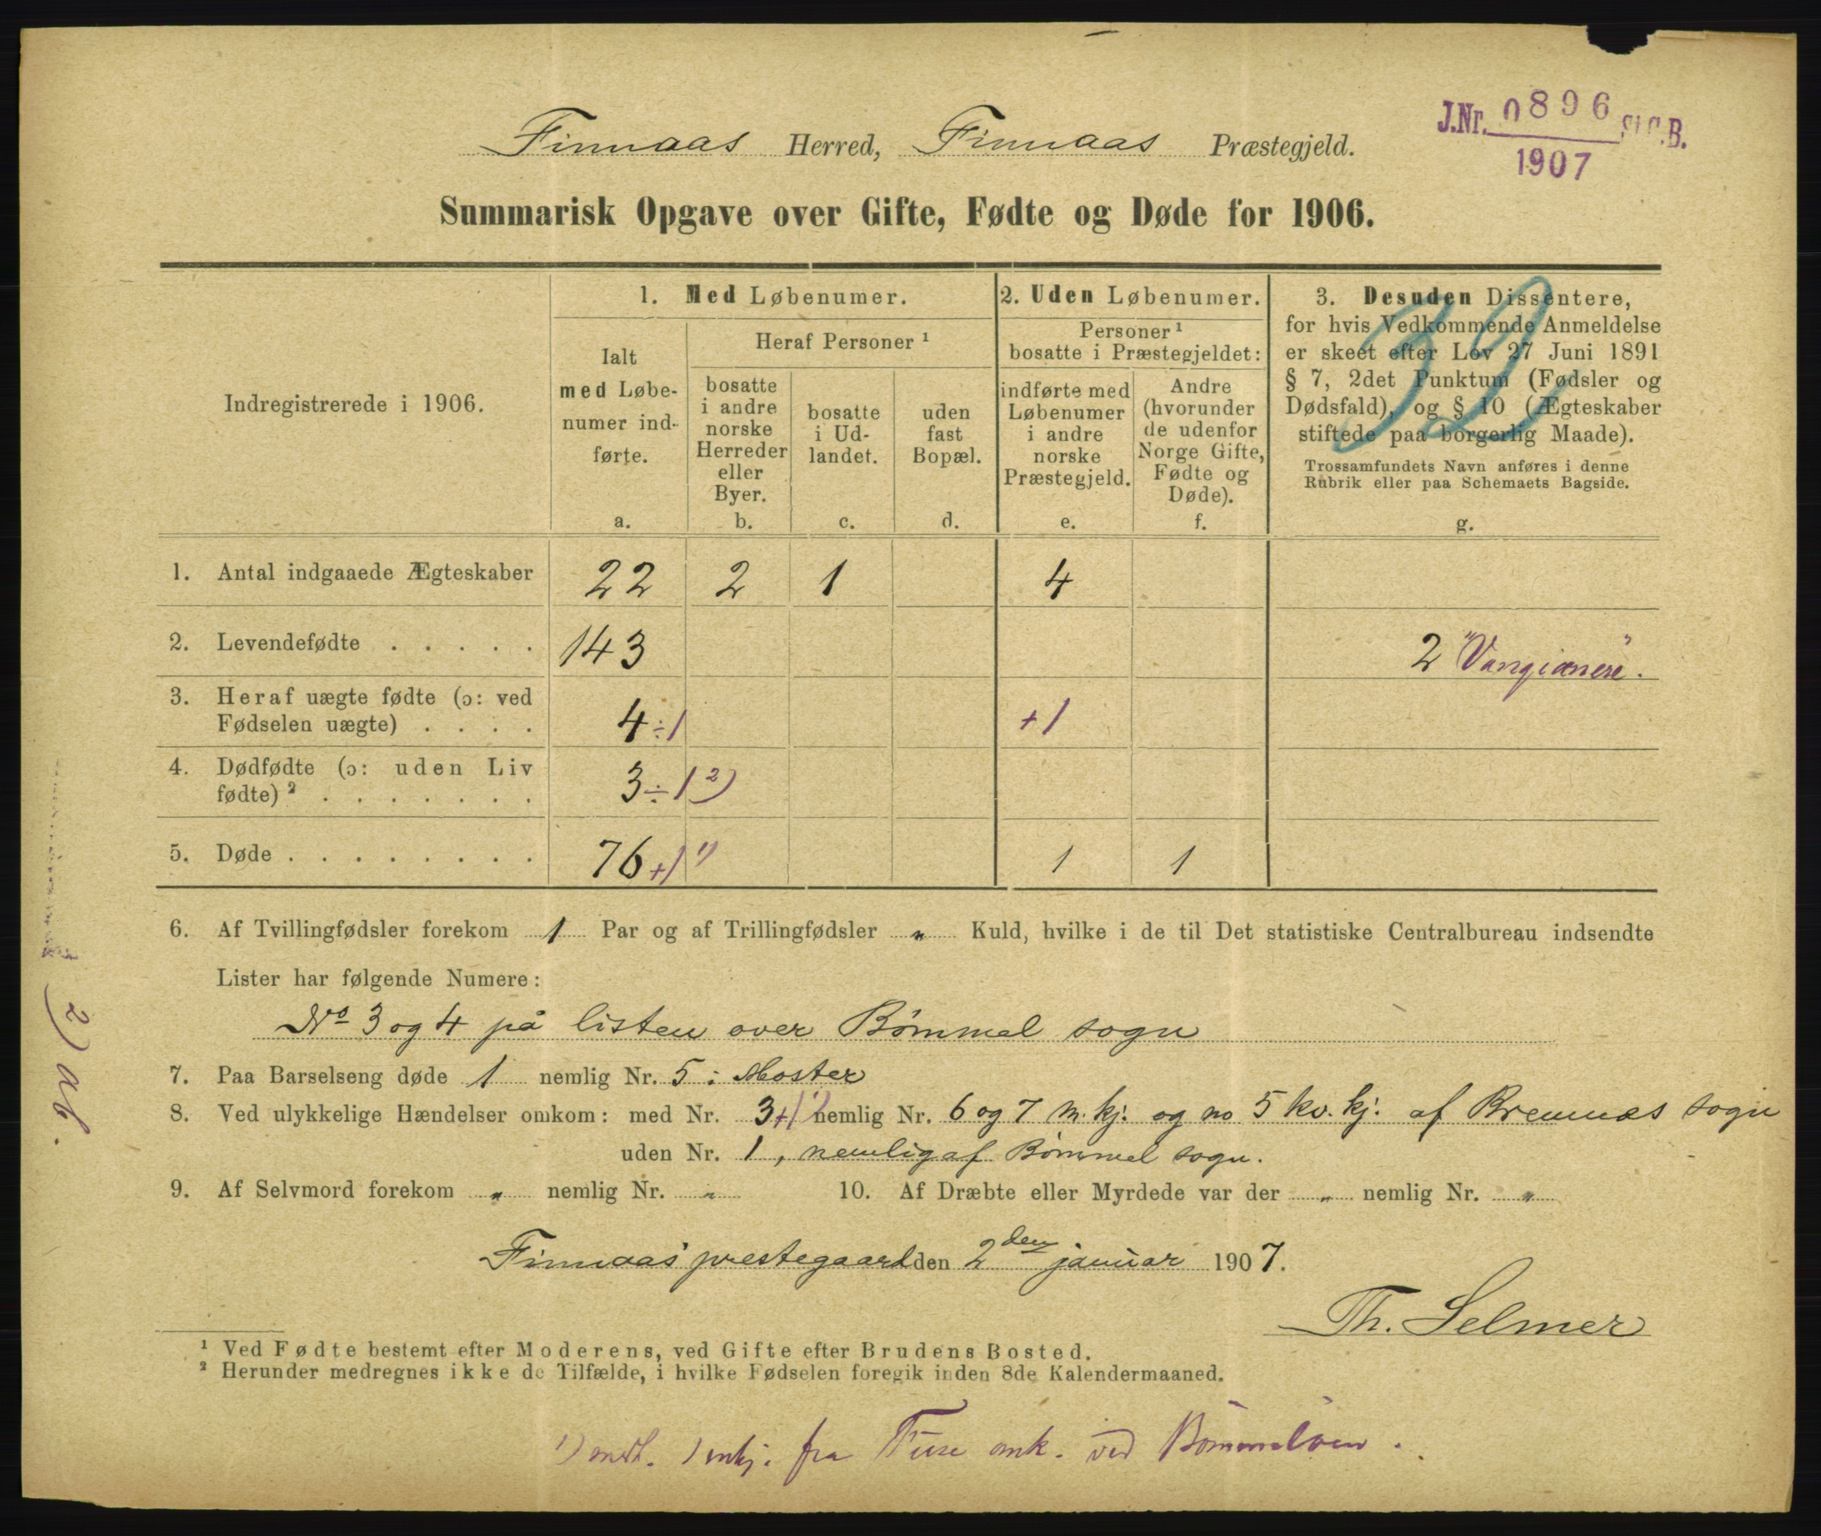 J.Nr. 0896 St.C.B.
1907
Finnaas Herred, Finnaas Præstegjeld.
Summarisk Opgave over Gifte, Fødte og Døde for 1906.
Indregistrerede i 1906.
1. Med Løbenumer.
Ialt
med Løbe-
numer ind-
førte.
a.
Heraf Personer ¹
bosatte
i andre
norske
Herreder
eller
Byer.
b.
bosatte
i Ud-
landet.
c.
uden
fast
Bopæl.
d.
2. Uden Løbenumer.
Personer ¹
bosatte i Præstegjeldet:
indførte med
Løbenumer
i andre
norske
Præstegjeld.
e.
Andre
(hvorunder
de udenfor
Norge Gifte,
Fødte og
Døde).
f.
3. Desuden Dissentere,
for hvis Vedkommende Anmeldelse
er skeet efter Lov 27 Juni 1891
§ 7, 2det Punktum (Fødsler og
Dødsfald), og § 10 (Ægteskaber
stiftede paa borgerlig Maade).
Trossamfundets Navn anføres i denne
Rubrik eller paa Schemaets Bagside.
g.
32
1. Antal indgaaede Ægteskaber 22 2 1 4
2. Levendefødte . . . . . 143 2 "Vangianere".
3. Heraf uægte fødte (ɔ: ved
Fødselen uægte) . . . . 4 ÷1 +1
4. Dødfødte (ɔ: uden Liv
fødte) ² . . . . . . . 3 ÷1 2)
5. Døde . . . . . . . . 76 +1 1) 1 1
6. Af Tvillingfødsler forekom 1 Par og af Trillingfødsler " Kuld, hvilke i de til Det statistiske Centralbureau indsendte
Lister har følgende Numere:
No 3 og 4 på listen over Bømmel sogn
7. Paa Barselseng døde 1 nemlig Nr. 5 : Moster
8. Ved ulykkelige Hændelser omkom: med Nr. 3 +1 1) nemlig Nr. 6 og 7 m.kj. og no 5 kv.kj. af Bremnes sogn
uden Nr. 1, nemlig af Bømmel sogn.
9. Af Selvmord forekom " nemlig Nr. " 10. Af Dræbte eller Myrdede var der " nemlig Nr. "
Finnaas prestegaard den 2den januar 1907.
Th. Selmer
¹ Ved Fødte bestemt efter Moderens, ved Gifte efter Brudens Bosted.
² Herunder medregnes ikke de Tilfælde, i hvilke Fødselen foregik inden 8de Kalendermaaned.
1) 1 mkj. fra Fuse omk. ved Bømmeløen.
2)